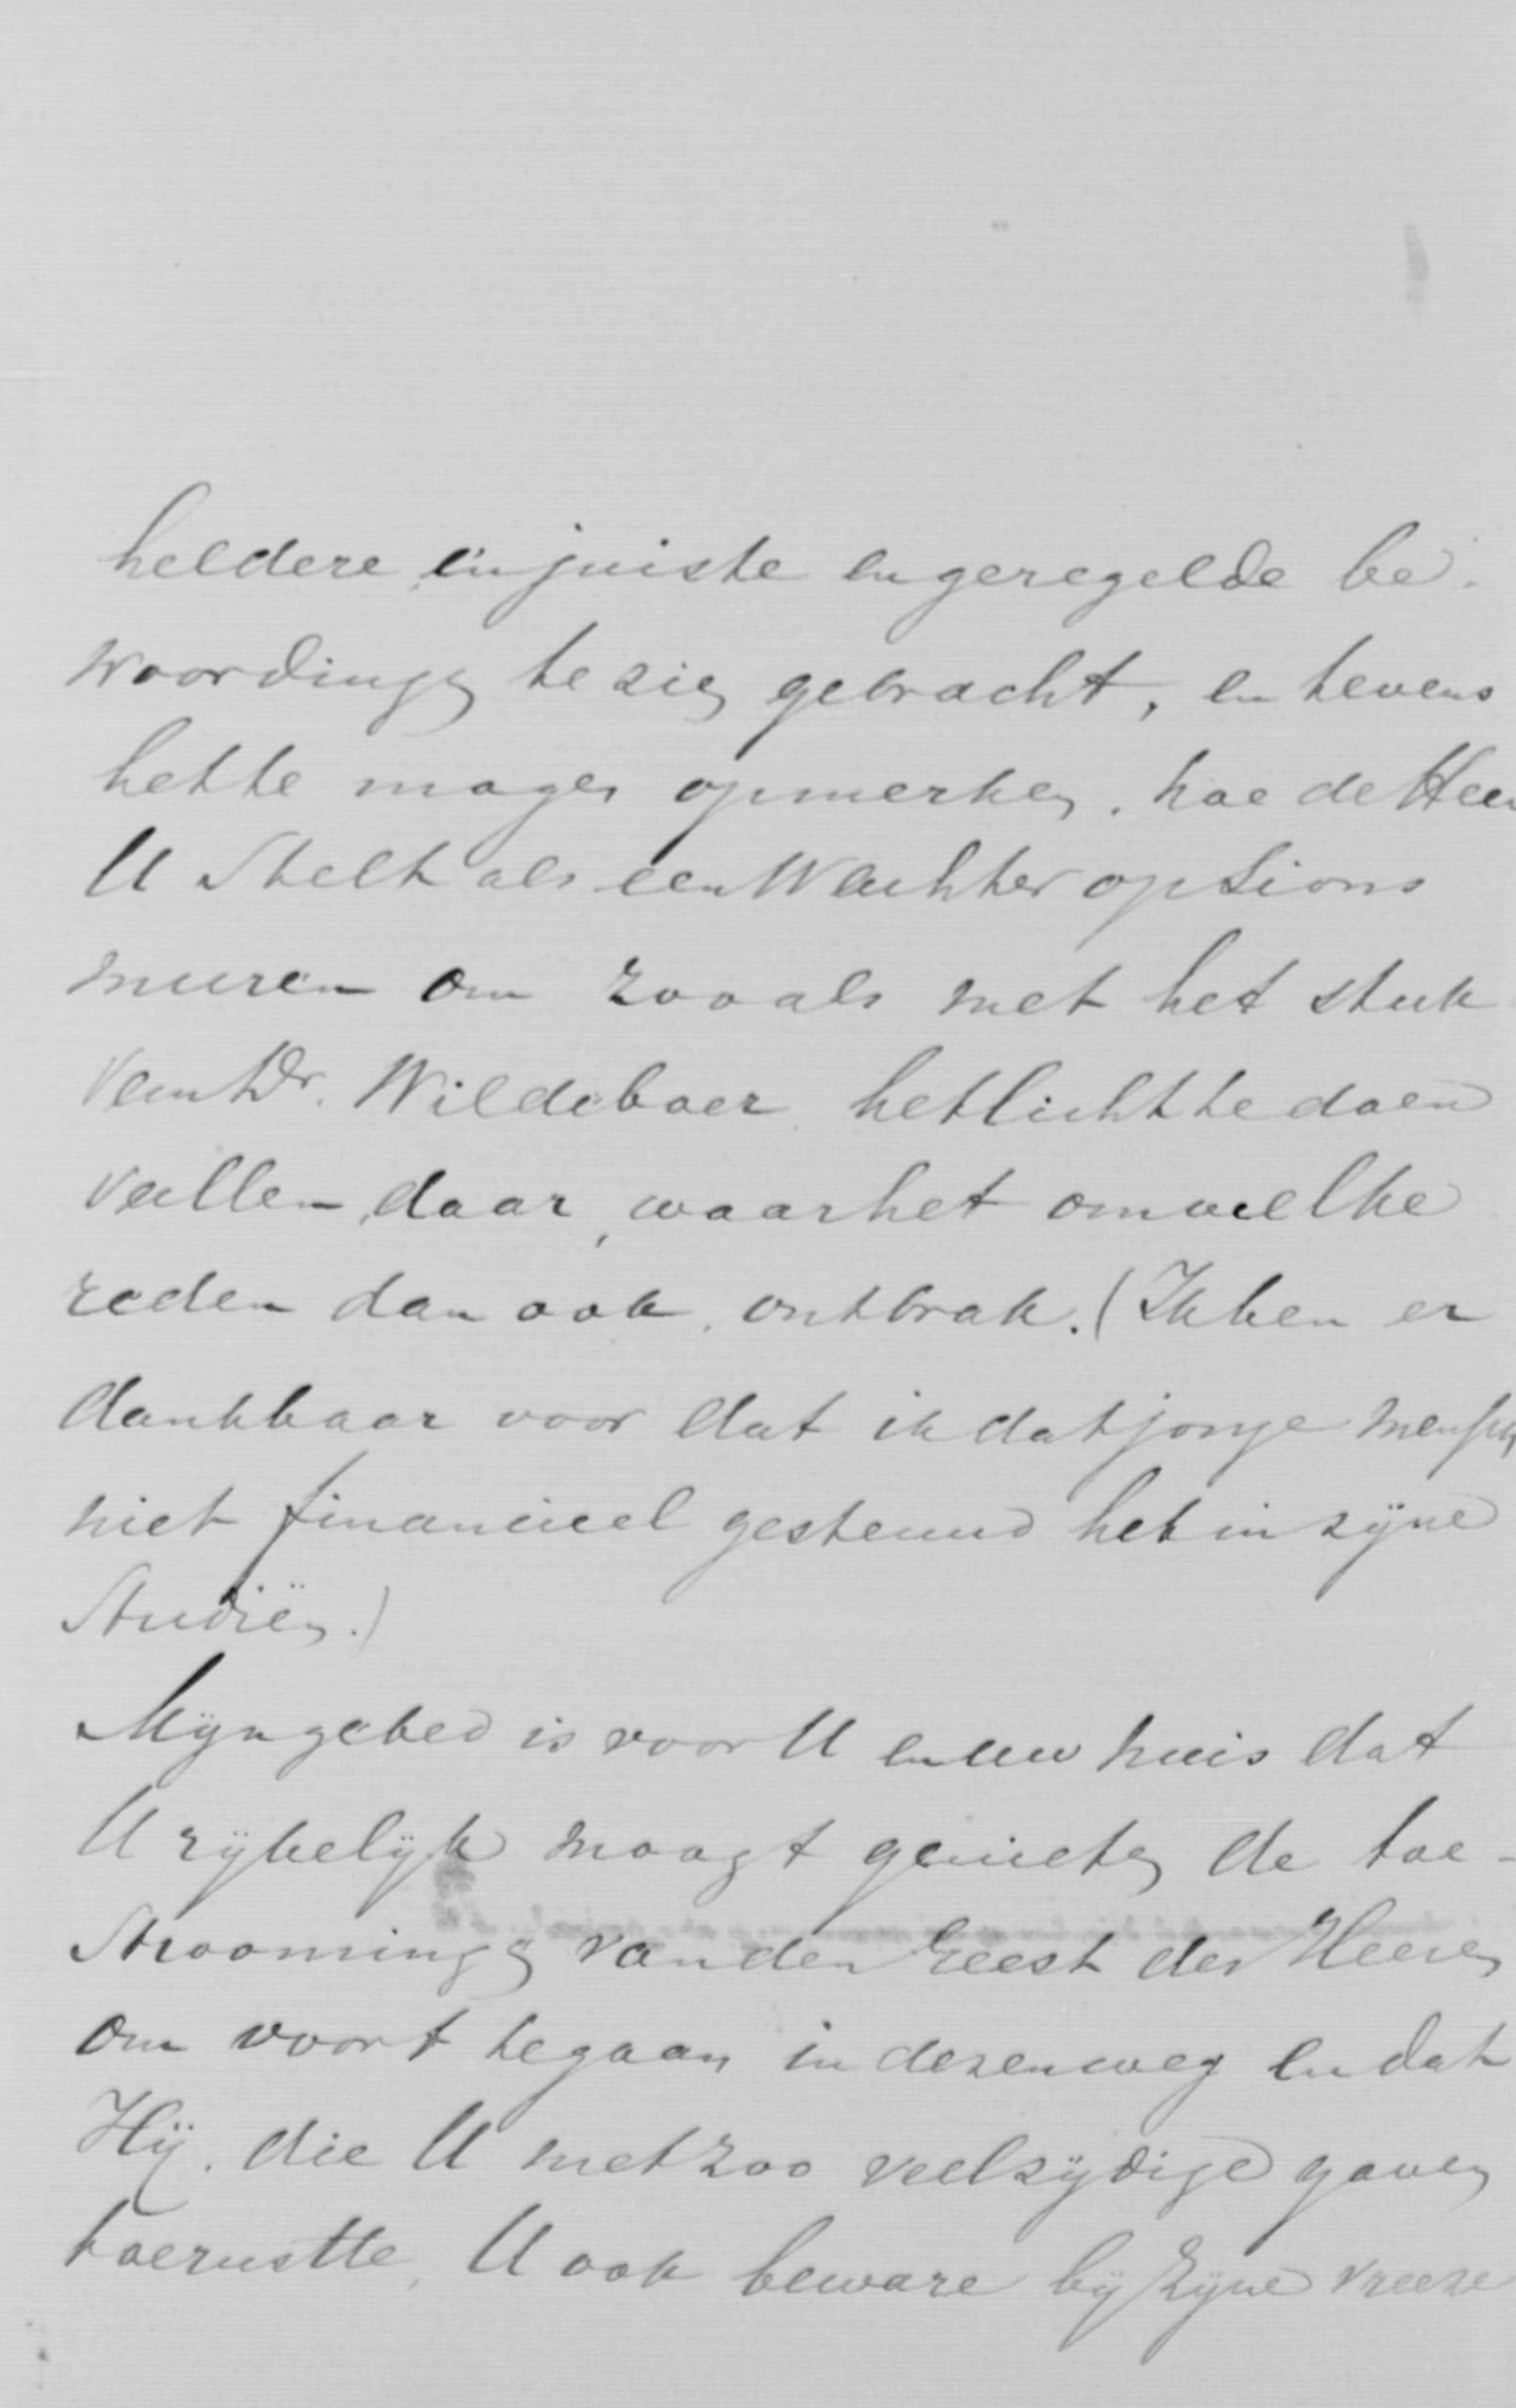 heldere, en juiste en geregelde be-
woordingen te zien gebracht, en tevens
het te mogen opmerken, hoe de Heer
U stelt als een Wachter op Sions
muren om zooals met het stuk
van Dr. Wildeboer het licht te doen
vallen, daar, waar het om welke
reden dan ook, ontbrak. (Ik ben er
dankbaar voor dat ik dat jonge mensch
niet financieel gesteund heb in zijne
Studiën.)
Mijn gebed is voor U en uw huis dat
U rijkelijk moogt genieten de toe-
stroomingen van den Geest des Heeren
om voort te gaan in dezen weg en dat
Hij, die U met zoo veelzijdige gaven
toerustte, U ook beware bij Zijne vreeze